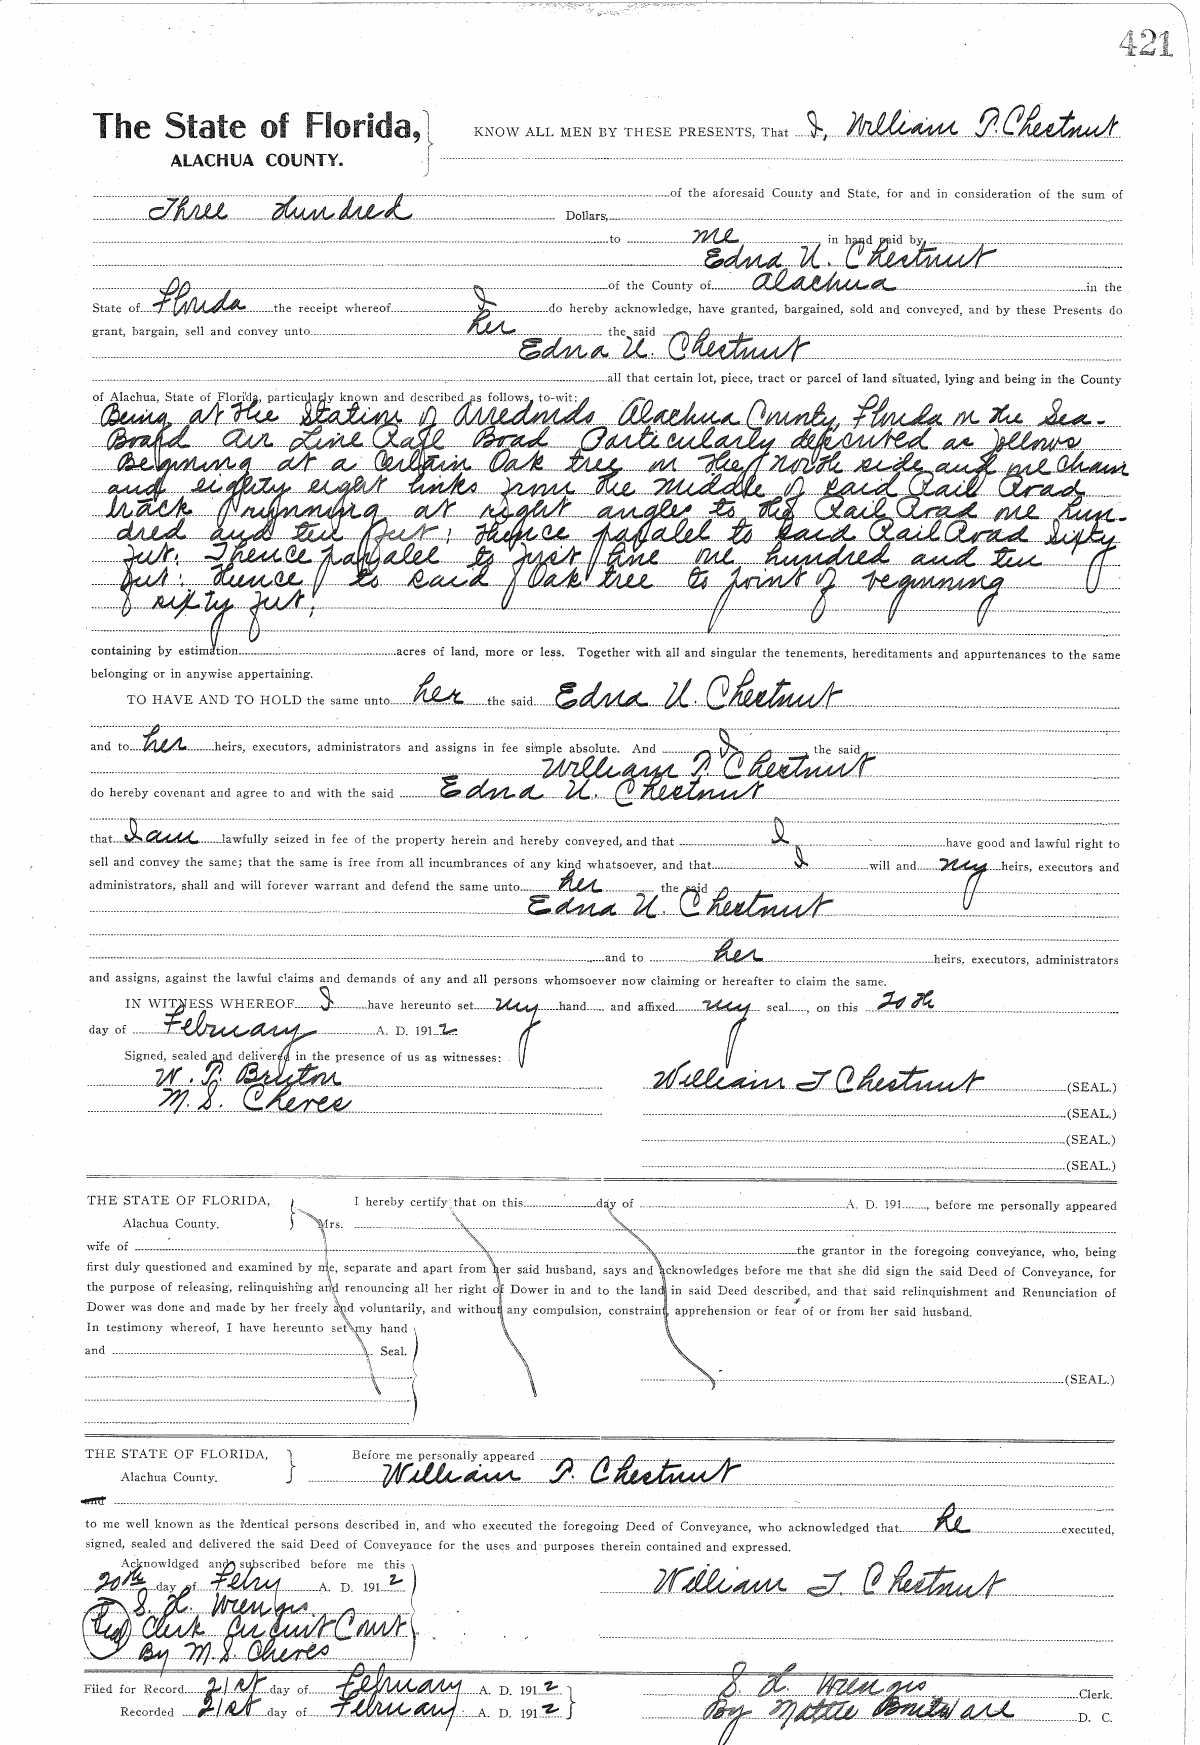 421
The State of Florida, KNOW ALL MEN BY THESE PRESENTS, That I, William T. Chestnut
ALACHUA COUNTY.
of the aforesaid County and State, for and in consideration of the sum of
Three Hundred Dollars,
to me in hand paid by
Edna U. Chestnut
of the County of Alachua in the
State of Florida the receipt whereof I do hereby acknowledge, have granted, bargained, sold and conveyed, and by these Presents do
grant, bargain, sell and convey unto her the said
Edna U. Chestnut
all that certain lot, piece, tract or parcel of land situated, lying and being in the County
of Alachua, State of Florida, particularly known and described as follows, to-wit:
Being at the Station of Arredondo Alachua County, Florida on the Sea-
Board Air Line Rail Road Particularly as follows
Beginning at a Certain Oak tree on the north side and one chain
and eighty eight links from the middle of said Rail Road
track running at right angles to the Rail Road one hun-
dred and ten feet; thence paralel to said Rail Road sixty
feet; Thence paralel to first line one hundred and ten
feet; thence to said Oak tree to point of beginning
sixty feet;
containing by estimation acres of land, more or less. Together with all and singular the tenements, hereditaments and appurtenances to the same
belonging or in anywise appertaining.
TO HAVE AND TO HOLD the same unto her the said Edna U. Chestnut
and to her heirs, executors, administrators and assigns in fee simple absolute. And I the said
William T. Chestnut
do hereby covenant and agree to and with the said Edna U. Chestnut
that I am lawfully seized in fee of the property herein and hereby conveyed, and that I have good and lawful right to
sell and convey the same; that the same is free from all incumbrances of any kind whatsoever, and that I will and my heirs, executors and
administrators, shall and will forever warrant and defend the same unto her the said
Edna U. Chestnut
and to her heirs, executors, administrators
and assigns, against the lawful claims and demands of any and all persons whomsoever now claiming or hereafter to claim the same.
IN WITNESS WHEREOF I have hereunto set my hand and affixed my seal, on this 20th
day of February A. D. 1912
Signed, sealed and delivered in the presence of us as witnesses:
W. P. Bruton William T Chestnut (SEAL.)
M. S. Cheves (SEAL.)
(SEAL.)
(SEAL.)
THE STATE OF FLORIDA, I hereby certify that on this day of A. D. 191 , before me personally appeared
Alachua County. Mrs.
wife of the grantor in the foregoing conveyance, who, being
first duly questioned and examined by me, separate and apart from her said husband, says and acknowledges before me that she did sign the said Deed of Conveyance, for
the purpose of releasing, relinquishing and renouncing all her right of Dower in and to the land in said Deed described, and that said relinquishment and Renunciation of
Dower was done and made by her freely and voluntarily, and without any compulsion, constraint, apprehension or fear of or from her said husband.
In testimony whereof, I have hereunto set my hand
and Seal.
(SEAL.)
THE STATE OF FLORIDA, Before me personally appeared
Alachua County. William T. Chestnut
and
to me well known as the identical persons described in, and who executed the foregoing Deed of Conveyance, who acknowledged that he executed,
signed, sealed and delivered the said Deed of Conveyance for the uses and purposes therein contained and expressed.
Acknowldged and subscribed before me this
20th day of Febry A. D. 1912 William T. Chestnut
S. H. Wienges
Clerk Circuit Court
By M. S. Cheves
Filed for Record 21st day of February A. D. 1912 S. H. Wienges Clerk.
Recorded 21st day of February A. D. 1912 By Mattie D. C.